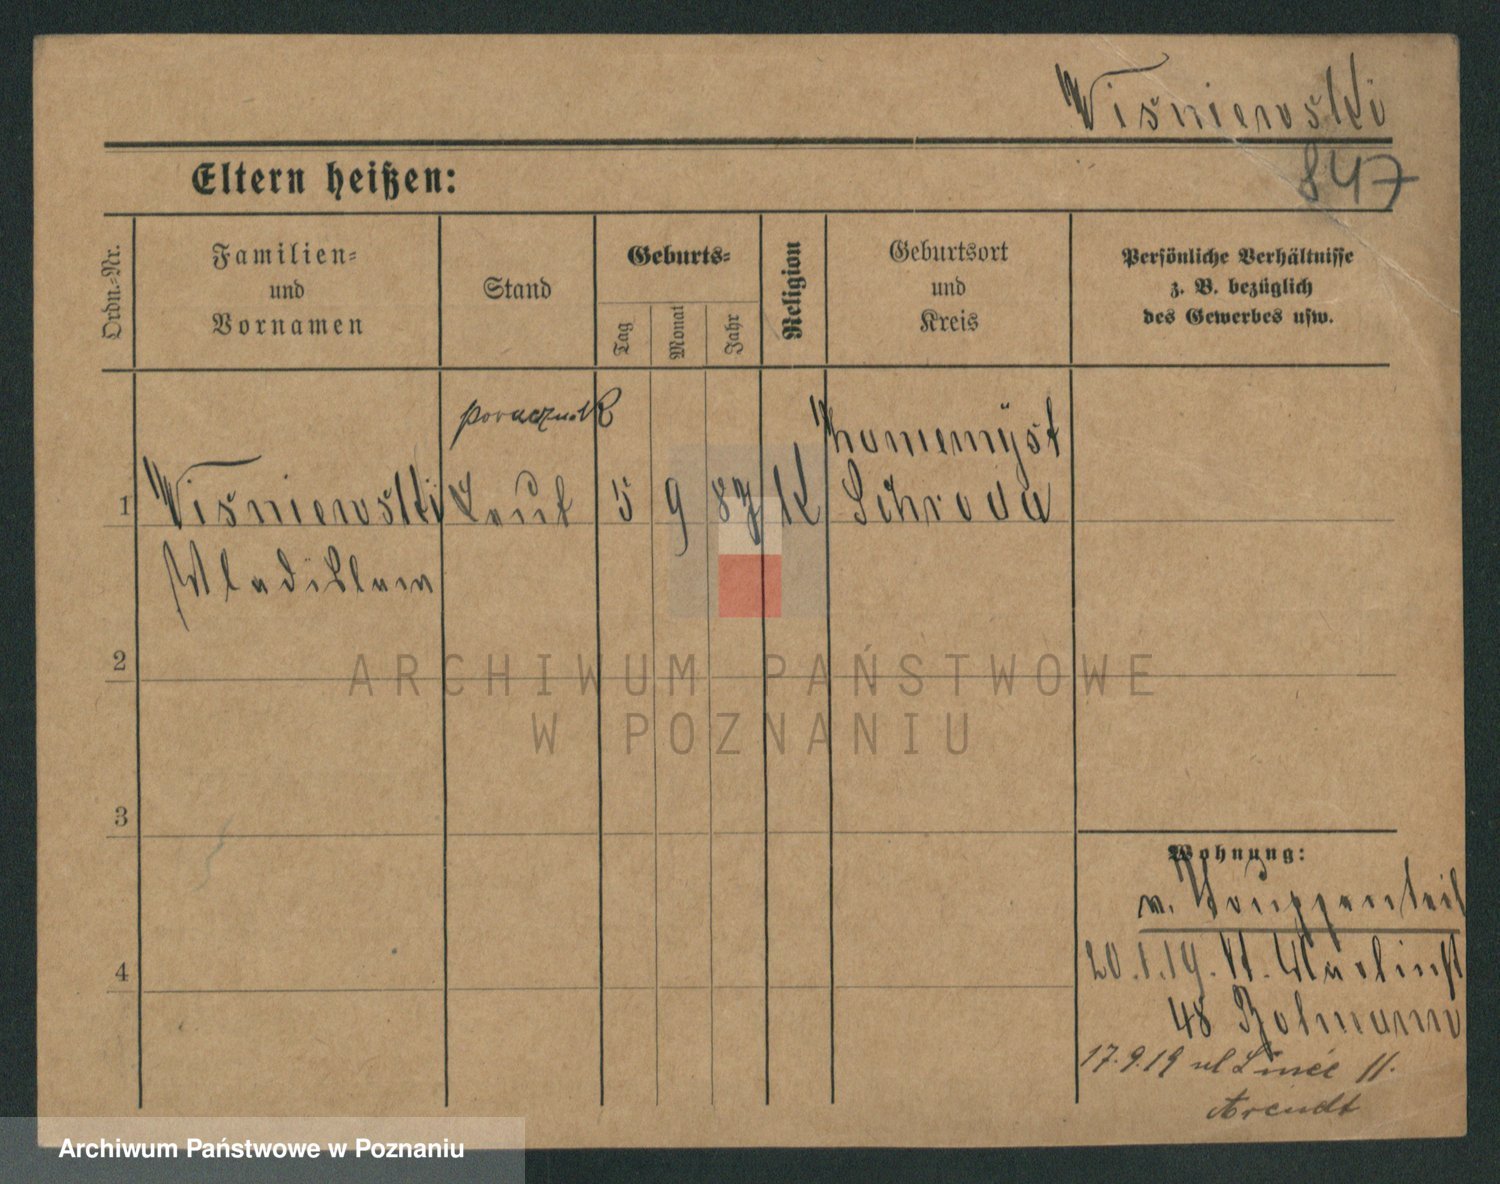 Wiśniewski
847
Eltern heißen:
Ordn.-Nr.
Familien-
und
Vornamen
Stand
Geburts-
Tag
Monat
Jahr
Religion
Geburtsort
und
Kreis
Persönliche Verhältnisse
z. B. bezüglich
des Gewerbes usw.
porucznik
1 Wiśniewski Leut 5 9 87 K Schroda
Wladislaw
2
ARCHIWUM PAŃSTWOWE
W POZNANIU
3
Wohnung:
v. Truppenteil
20.1.19.
48
17.9.19 ul 11.
Arendt
4
Archiwum Państwowe w Poznaniu